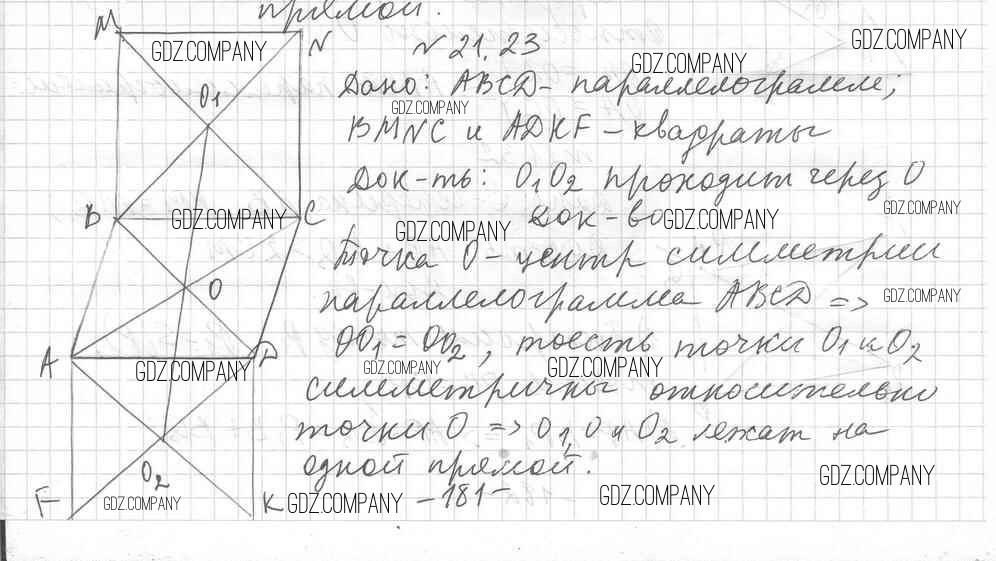 прямой.
M
N
№ 21.23
GDZ.COMPANY
GDZ.COMPANY
GDZ.COMPANY
Дано: ABCD - параллелограмм;
O1
GDZ.COMPANY
BMNC и ADKF - квадраты
Док-ть: O1O2 проходит через O
B
GDZ.COMPANY
C
Док-во
GDZ.COMPANY
GDZ.COMPANY
GDZ.COMPANY
Точка O - центр симметрии
O
параллелограмма ABCD =>
GDZ.COMPANY
OO1 = OO2, тоесть точки O1 и O2
A
D
GDZ.COMPANY
GDZ.COMPANY
GDZ.COMPANY
симметричны относительно
точки O => O1, O и O2 лежат на
одной прямой.
O2
GDZ.COMPANY
F
GDZ.COMPANY
K
GDZ.COMPANY
-181-
GDZ.COMPANY